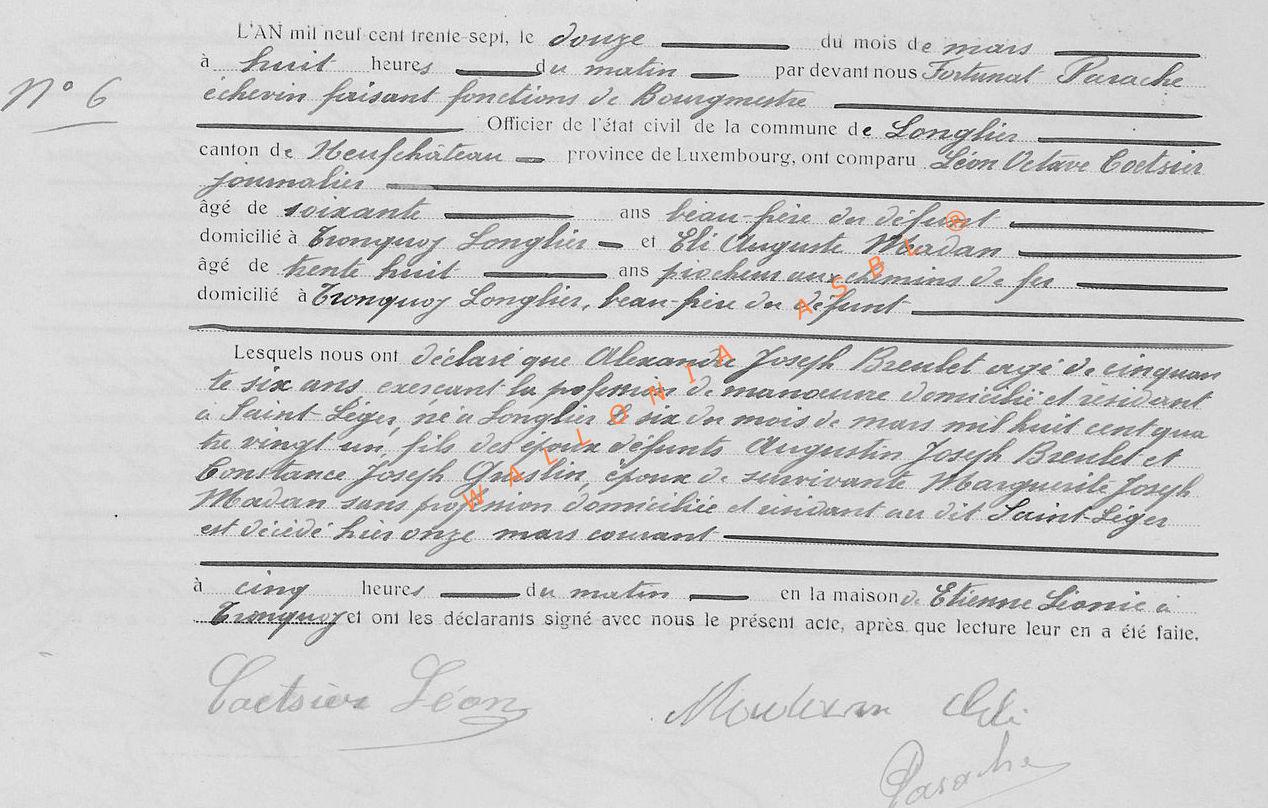 N° 6
L'AN mil neuf cent trente-sept, le douze du mois de mars
à huit heures du matin par devant nous Fortunat Parache
échevin faisant fonctions de Bourgmestre
Officier de l'état civil de la commune de Longlier
canton de Neufchâteau province de Luxembourg, ont comparu Léon Octave Coetsier
journalier
âgé de soixante ans beau-frère du défunt
domicilié à Tronquoy Longlier et Eli Auguste Madan
âgé de trente huit ans piocheur aux chemins de fer
domicilié à Tronquoy Longlier, beau-frère du défunt
Lesquels nous ont déclaré que Alexandre Joseph Breulet agé de cinquan
te six ans, exerçant la profession de manœuvre domicilié et résidant
à Saint-Léger, né à Longlier le six du mois de mars mil huit cent qua
tre vingt un, fils des époux défunts Augustin Joseph Breulet et
Constance Joseph Guslin, époux de survivante Marguerite Joseph
Madan sans profession domiciliée et résidant au dit Saint-Léger
est décédé hier onze mars courant
à cinq heures du matin en la maison de Etienne Léonie à
Tronquoy et ont les déclarants signé avec nous le présent acte, après que lecture leur en a été faite.
Coetsier Léon
Eli
Parache
WALLONIA ASBL ®